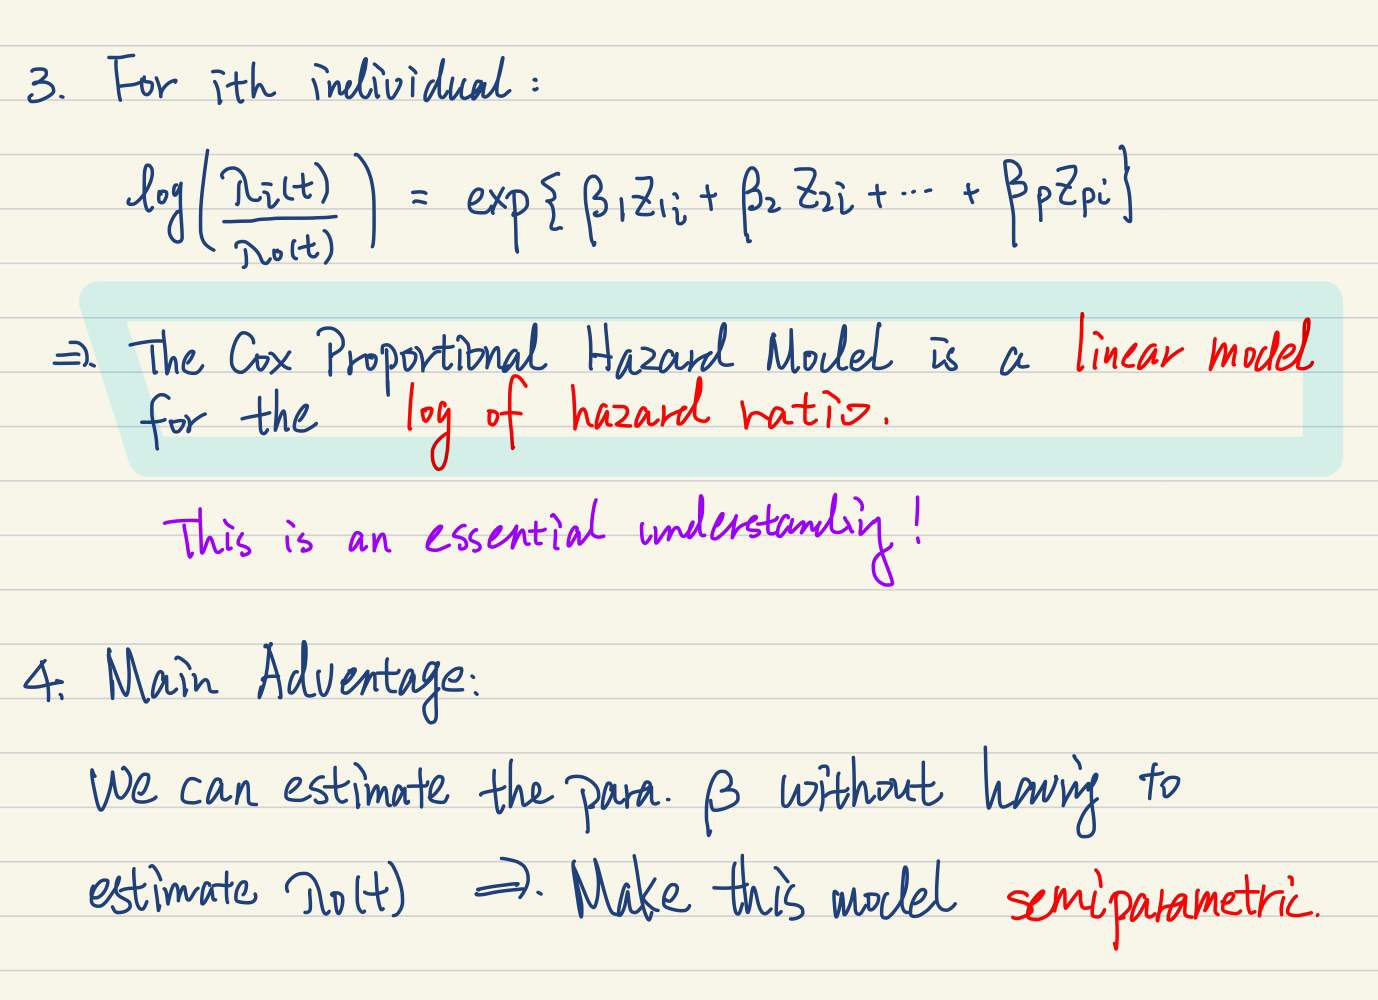 3. For ith individual:
log(λi(t)/λ0(t)) = exp{β1Z1i + β2Z2i + ... + βpZpi}
⇒. The Cox Proportional Hazard Model is a linear model
for the log of hazard ratio.
This is an essential understanding!
4. Main Adventage:
We can estimate the para. β without having to
estimate λ0(t) ⇒. Make this model semiparametric.